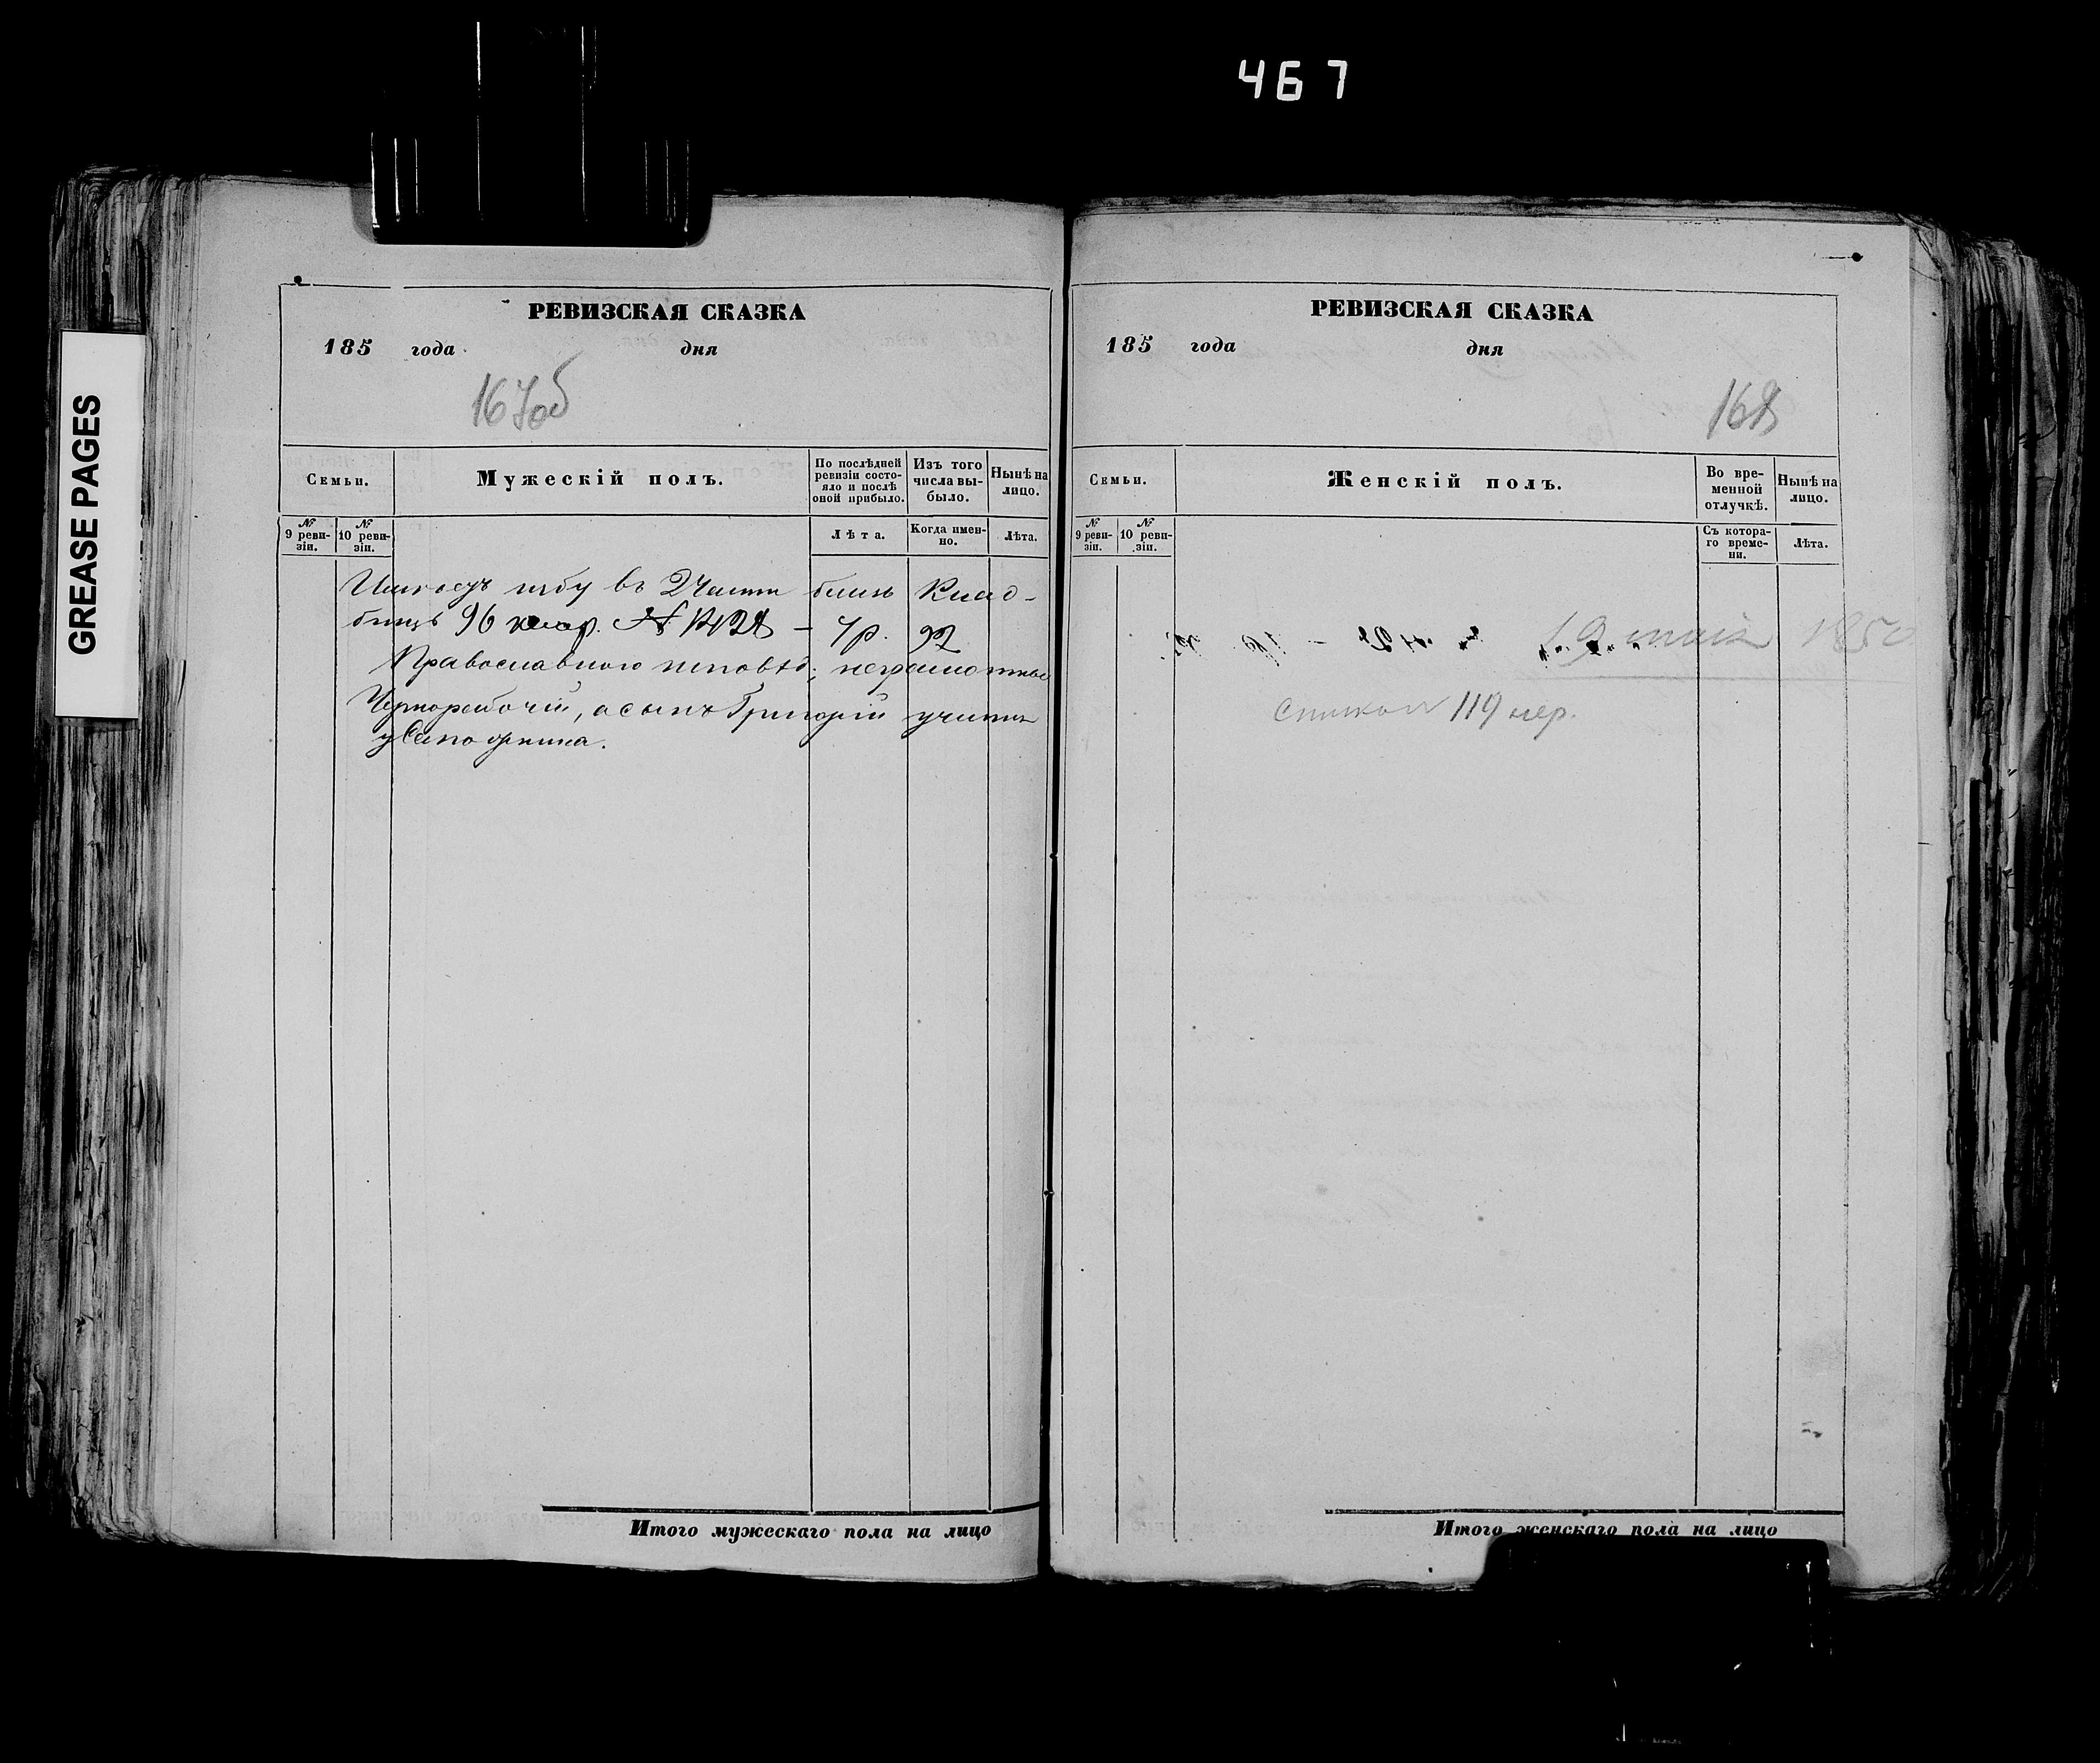 467
GREASE PAGES
РЕВИЗСКАЯ СКАЗКА
185 года дня
167об
Семьи.
Мужескій полъ.
По послѣдней ревизіи состо-
яло и послѣ оной прибыло.
Изъ того числа вы-
было.
Нынѣ на лицо.
№ 9 реви-
зіи.
№ 10 реви-
зіи.
Лѣта.
Когда имен-
но.
Лѣта.
избу въ 2 Части близь Клад-
бищъ 96 квар. № 1428 –
Православнаго исповѣд; неграмотные
Чернорабочій, а сынъ Григорій учится
у Сапожника.
Итого мужескаго пола на лицо
РЕВИЗСКАЯ СКАЗКА
185 года дня
168
Семьи.
Женскій полъ.
Во вре-
менной отлучкѣ.
Нынѣ на лицо.
№ 9 реви-
зіи.
№ 10 реви-
зіи.
Съ котора-
го време-
ни.
Лѣта.
19 185
119
Итого женскаго пола на лицо